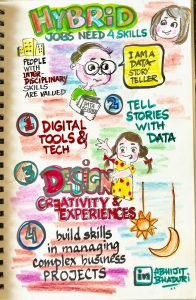 HYBRID
JOBS NEED 4 SKILLS
PEOPLE
WITH
INTER
DISCIPLINARY
SKILLS
ARE VALUED
I AM A
DATA-
STORY
TELLER
DATA
DESIGN
1 DIGITAL
TOOLS &
TECH
2: TELL
STORIES
WITH
DATA
3 DESIGN
CREATIVITY &
EXPERIENCES
4 build skills
in managing
complex business
PROJECTS
in ABHIJIT
BHADURI